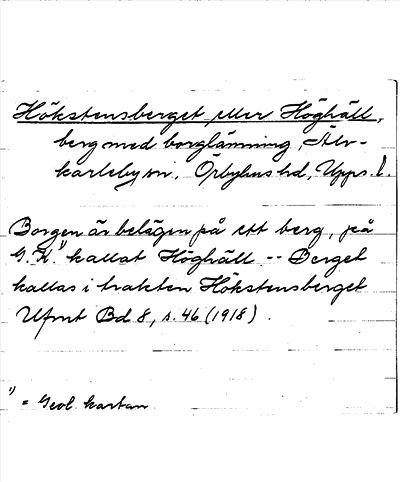 Hökstensberget eller Höghäll,
berg med borglämning, Älv-
karleby sn, Örbyhus hd, Upps. l.
Borgen är belägen på ett berg, på
G.K.¹⁾ kallat Höghäll -- Berget
kallas i trakten Hökstensberget
Ufmt Bd 8, s. 46 (1918).
¹⁾ = Geol. kartan